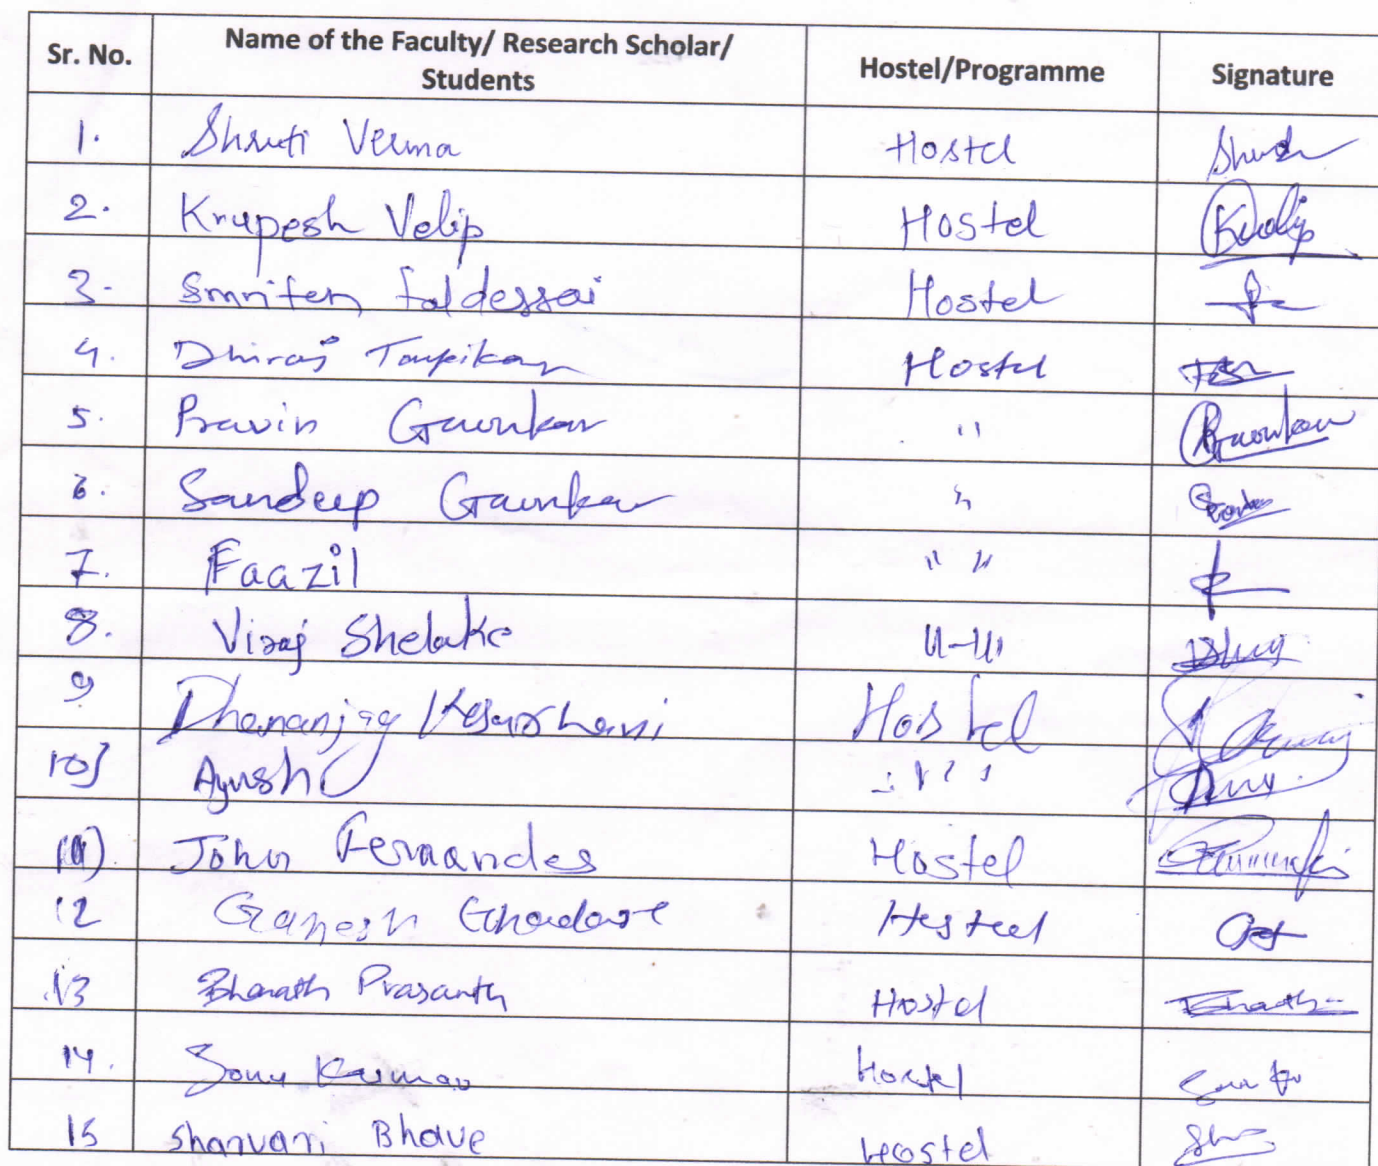 Sr. No. Name of the Faculty/ Research Scholar/ Students Hostel/Programme Signature
1. Shruti Verma Hostel
2. Krupesh Velip Hostel
3. Smriten faldessai Hostel
4. Dhiraj Hostel
5. Pravin Gaunkar "
6. Sandeep Gaunkar "
7. Faazil " "
8. Viraj Shelake "-"
9 Dhananjay Hostel
10) Ayush
11) John Fernandes Hostel
12 Ganesh Hostel
13 Bharath Prasanth Hostel
14. Sonu Kumar Hostel
15 Sharvari Bhave Hostel